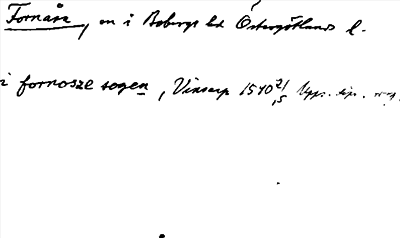 Fornåsa, sn i Bobergs hd Östergötlands l.
i fornosze sogen, Vinsarp 1540 21/5 Upps. dip.